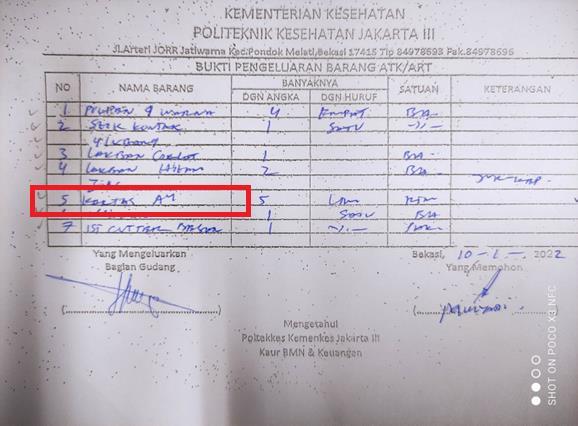 KEMENTERIAN KESEHATAN
POLITEKNIK KESEHATAN JAKARTA III
Jl.Arteri JORR Jatiwarna Kec.Pondok Melati,Bekasi 17415 Tlp 84978693 Pak.84978696
BUKTI PENGELUARAN BARANG ATK/ART
NO NAMA BARANG BANYAKNYA SATUAN KETERANGAN
DGN ANGKA DGN HURUF
1 4 Empat
2 Stik Kontak 1 Satu
4 Lubang
3 Lakban Coklat 1
4 Lakban Hitam 2
5 Kertas A4 5 Lima Rim
1 Satu
7 isi Cutter 1
Yang Mengeluarkan Bekasi, 10 - 1 - 2022
Bagian Gudang Yang Memohon
Mengetahui
Poltekkes Kemenkes Jakarta III
Kaur BMN & Keuangan
SHOT ON POCO X3 NFC